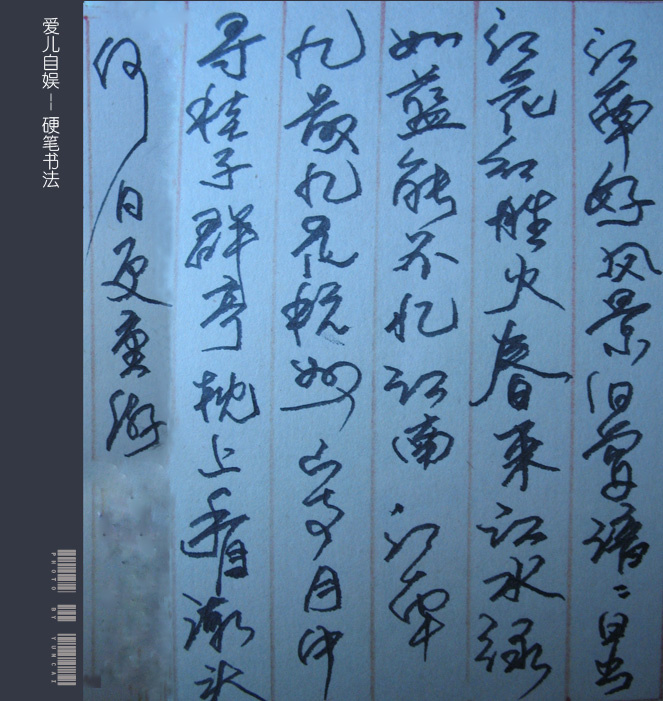 江南好风景旧曾谙日出
江花红胜火春来江水绿
如蓝能不忆江南 江南
忆最忆是杭州山寺月中
寻桂子群亭枕上看潮头
何日更重游
爱儿自娱--硬笔书法
PHOTO BY YUNCAI